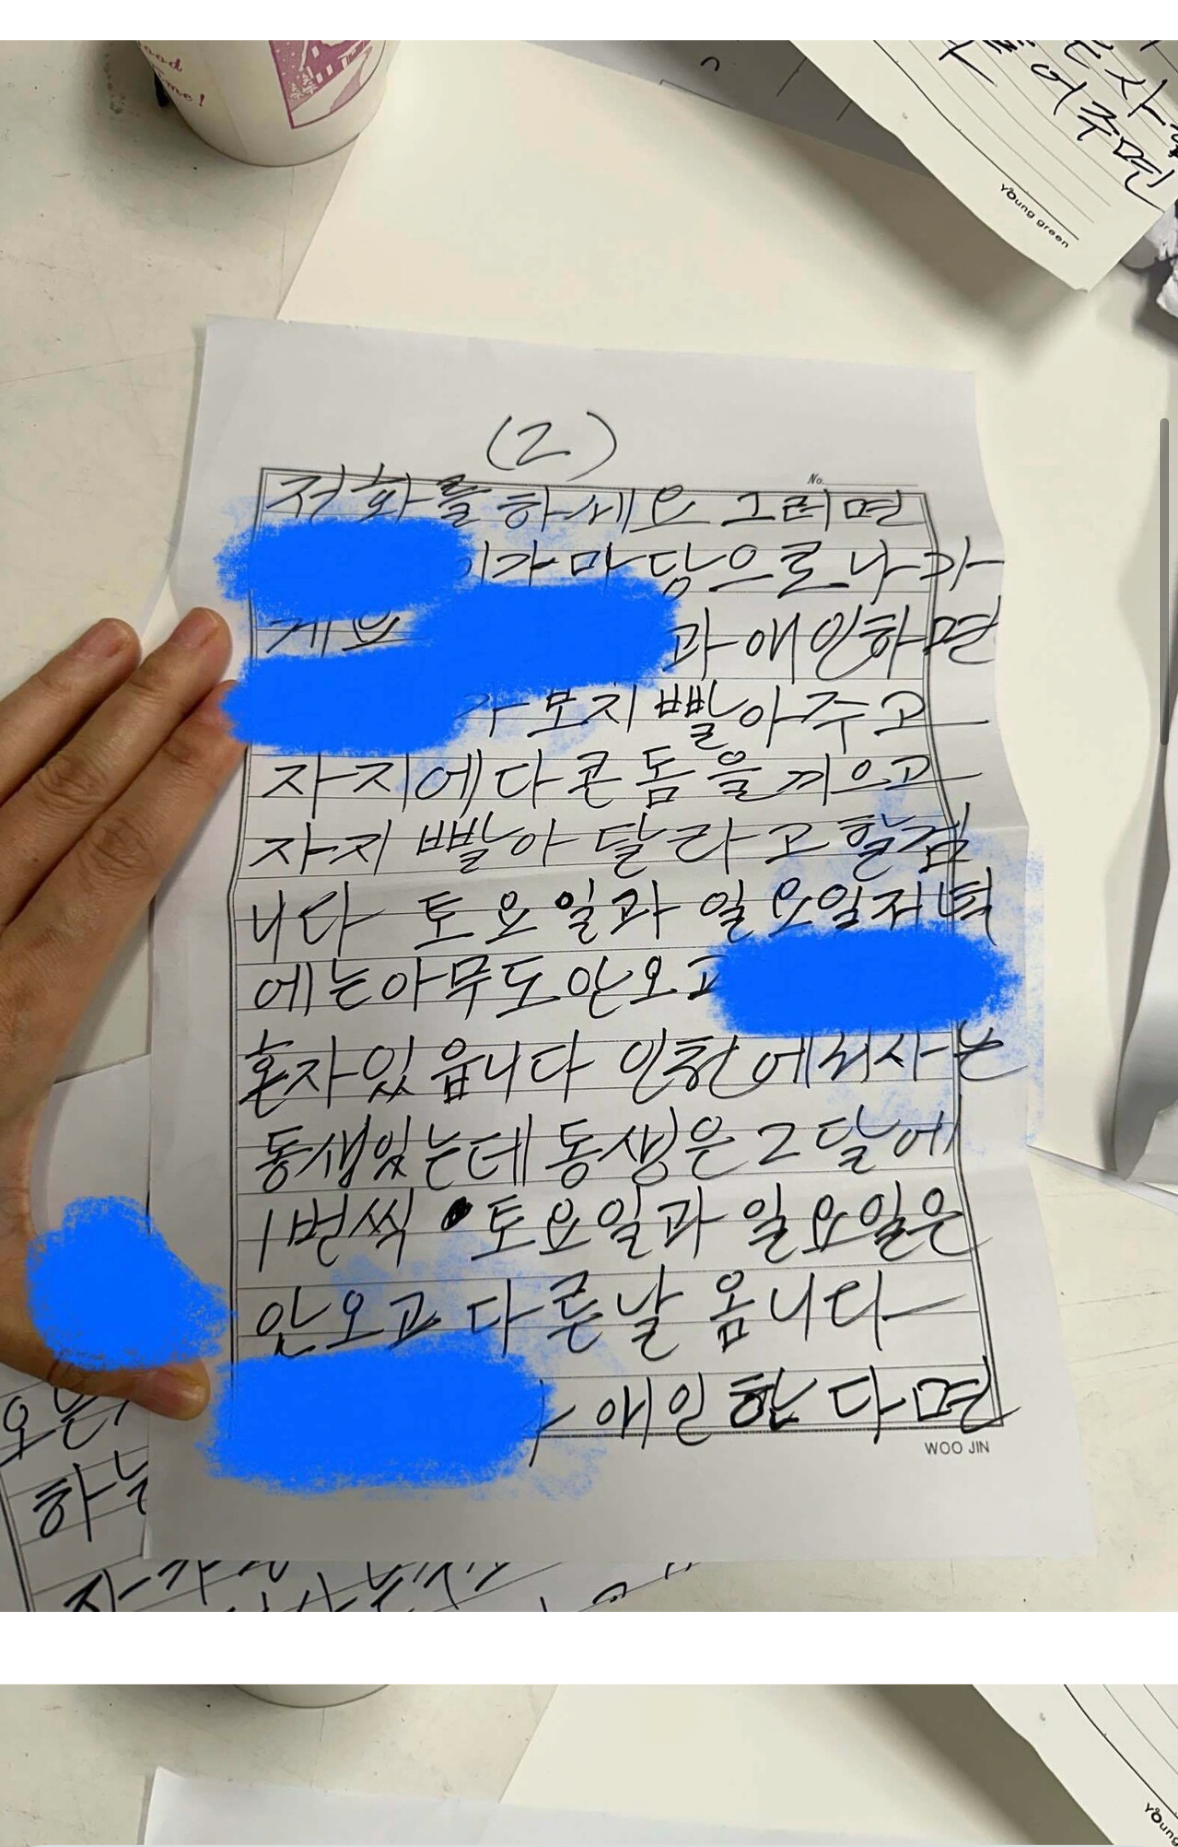 ood
me!
어주면
Young green
(2)
No.
전화를하세요 그러면
이가 마당으로 나가
게요
과 애인하면
가 보지 빨아주고
자지에다 콘돔을 끼으고
자지 빨아 달라고 할겁
니다 토요일과 일요일저녁
에는아무도안오고
혼자있읍니다 인천에서사는
동생있는데 동생은 2달에
1번씩 토요일과 일요일은
안오고 다른날 옴니다
애인한다면
WOO JIN
하는
Young